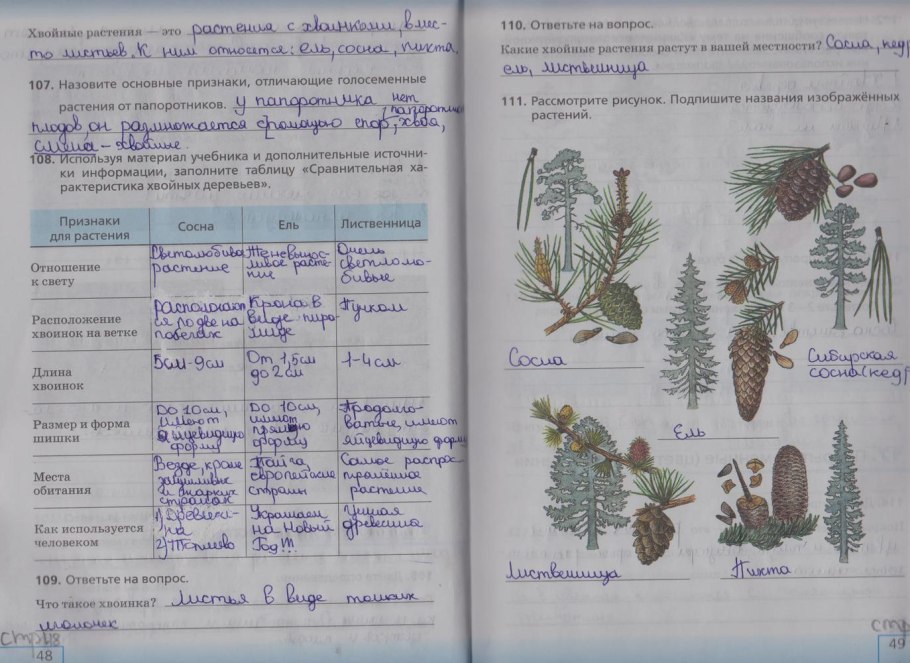 Хвойные растения — это растения с хвоинками, вмес-
то листьев. К ним относятся: ель, сосна, пихта.
107. Назовите основные признаки, отличающие голосеменные
растения от папоротников. У папоротника нет
плодов, он размножается с помощью спор,
- хвойные.
108. Используя материал учебника и дополнительные источни-
ки информации, заполните таблицу «Сравнительная ха-
рактеристика хвойных деревьев».
Признаки для растения
Сосна
Ель
Лиственница
Отношение к свету
Светолюбивое растение
растение
Очень светолюбивые
Расположение хвоинок на ветке
Располагаются по две на побегах
Крона в виде пирамиде
Пучком
Длина хвоинок
5см-9см
От 1,5см до 2см
1-4см
Размер и форма шишки
До 10см, имеют яйцевидную форму
До 10см, имеют прямую форму
Продолговатые, имеют яйцевидную форму
Места обитания
Везде, кроме засушливых и жарких странах
Тайга, европейские страны
Самое распространённое растение
Как используется человеком
1) Древесина
2) Топливо
Украшаем на Новый Год!!!
Ценная древесина
109. Ответьте на вопрос.
Что такое хвоинка? Листья в виде тонких
иголочек
стр48
48
110. Ответьте на вопрос.
Какие хвойные растения растут в вашей местности? Сосна, кедр
ель, лиственница
111. Рассмотрите рисунок. Подпишите названия изображённых
растений.
Сосна
Сибирская
сосна(кедр
Ель
Лиственница
Пихта
стр
49